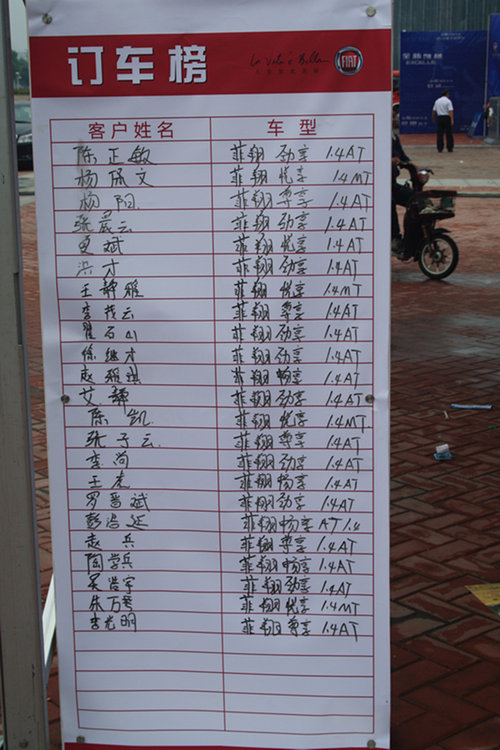 订车榜
La Vita è Bella
FIAT
客户姓名 车型
陈正敏 菲翔 劲享 1.4AT
杨 文 菲翔 悦享 1.4MT
杨阳 菲翔 尊享 1.4AT
张 云 菲翔 劲享 1.4AT
斌 菲翔 悦享 1.4AT
洪才 菲翔 劲享 1.4AT
王静雅 菲翔 悦享 1.4MT
李茂云 菲翔 尊享 1.4AT
翟石山 菲翔 劲享 1.4AT
徐继才 菲翔 劲享 1.4AT
赵雅琪 菲翔 畅享 1.4AT
艾静 菲翔 劲享 1.4AT
陈凯 菲翔 悦享 1.4MT
张子云 菲翔 尊享 1.4AT
李尚 菲翔 劲享 1.4AT
王虎 菲翔 畅享 1.4AT
罗晋斌 菲翔 劲享 1.4AT
彭浩延 菲翔 畅享 AT1.4
赵兵 菲翔 尊享 1.4AT
陶学兵 菲翔 畅享 1.4AT
吴浩宇 菲翔 劲享 1.4AT
朱万 菲翔 悦享 1.4MT
李光明 菲翔 尊享 1.4AT